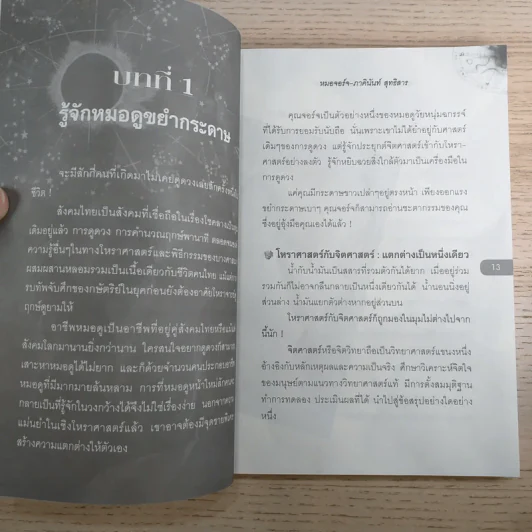 บทที่ 1
รู้จักหมอดูขยำกระดาษ
จะมีสักกี่คนที่เกิดมาไม่เคยดูดวงเลยสักครั้งหนึ่งใน
ชีวิต !
สังคมไทยเป็นสังคมที่เชื่อถือในเรื่องโชคลาง
เดิมอยู่แล้ว การดูดวง การคำนวณฤกษ์พานาที ตลอดจน
ความรู้อื่นๆในทางโหราศาสตร์และพิธีกรรมของบาง
ผสมผสานหลอมรวมเป็นเนื้อเดียวกับชีวิตคนไทย แม้แต่
รบทัพจับศึกของกษัตริย์ในยุคก่อนยังต้องอาศัยโหราจารย์
ฤกษ์ดูยามให้
อาชีพหมอดูเป็นอาชีพที่อยู่คู่สังคมไทยหรือแม้แต่
สังคมโลกมานานนมยิ่งกว่านาน ใครสนใจอยากดูดวงก็
เสาะหาหมอดูได้ไม่ยาก และก็ด้วยจำนวนคนประกอบอาชีพ
หมอดูที่มีมากมายล้นหลาม การที่หมอดูหน้าใหม่สักคน
กลายเป็นที่รู้จักในวงกว้างได้จึงไม่ใช่เรื่องง่าย นอกจาก
แม่นยำในเชิงโหราศาสตร์แล้ว เขาอาจต้องมีจุดขาย
สร้างความแตกต่างให้ตัวเอง
หมอจอร์จ-ภาคินันท์ สุทธิสาร
คุณจอร์จเป็นตัวอย่างหนึ่งของหมอดูวัยหนุ่มฉกรรจ์
ที่ได้รับการยอมรับนับถือ นั่นเพราะเขาไม่ได้ย่ำอยู่กับศาสตร์
เดิมๆของการดูดวง แต่รู้จักประยุกต์จิตศาสตร์เข้ากับโหรา-
ศาสตร์อย่างลงตัว รู้จักหยิบฉวยสิ่งใกล้ตัวมาเป็นเครื่องมือใน
การดูดวง
แค่คุณมีกระดาษขาวเปล่าๆอยู่ตรงหน้า เพียงออกแรง
ขยำกระดาษเบาๆ คุณจอร์จก็สามารถอ่านชะตากรรมของคุณ
ซึ่งอยู่อุ้งมือคุณเองได้แล้ว !
โหราศาสตร์กับจิตศาสตร์ : แตกต่างเป็นหนึ่งเดียว
น้ำกับน้ำมันเป็นสสารที่รวมตัวกันได้ยาก เมื่ออยู่รวม
รวมกันก็ไม่อาจกลืนกลายเป็นหนึ่งเดียวกันได้ น้ำนอนนิ่งอยู่
ส่วนล่าง น้ำมันแยกตัวต่างหากอยู่ส่วนบน
โหราศาสตร์กับจิตศาสตร์ก็ถูกมองในมุมไม่ต่างไปจาก
นี้นัก !
จิตศาสตร์หรือจิตวิทยาถือเป็นวิทยาศาสตร์แขนงหนึ่ง
อ้างอิงกับหลักเหตุผลและความเป็นจริง ศึกษาวิเคราะห์จิตใจ
ของมนุษย์ตามแนวทางวิทยาศาสตร์แท้ มีการตั้งสมมุติฐาน
ทำการทดลอง ประเมินผลที่ได้ นำไปสู่ข้อสรุปอย่างใดอย่าง
หนึ่ง
13